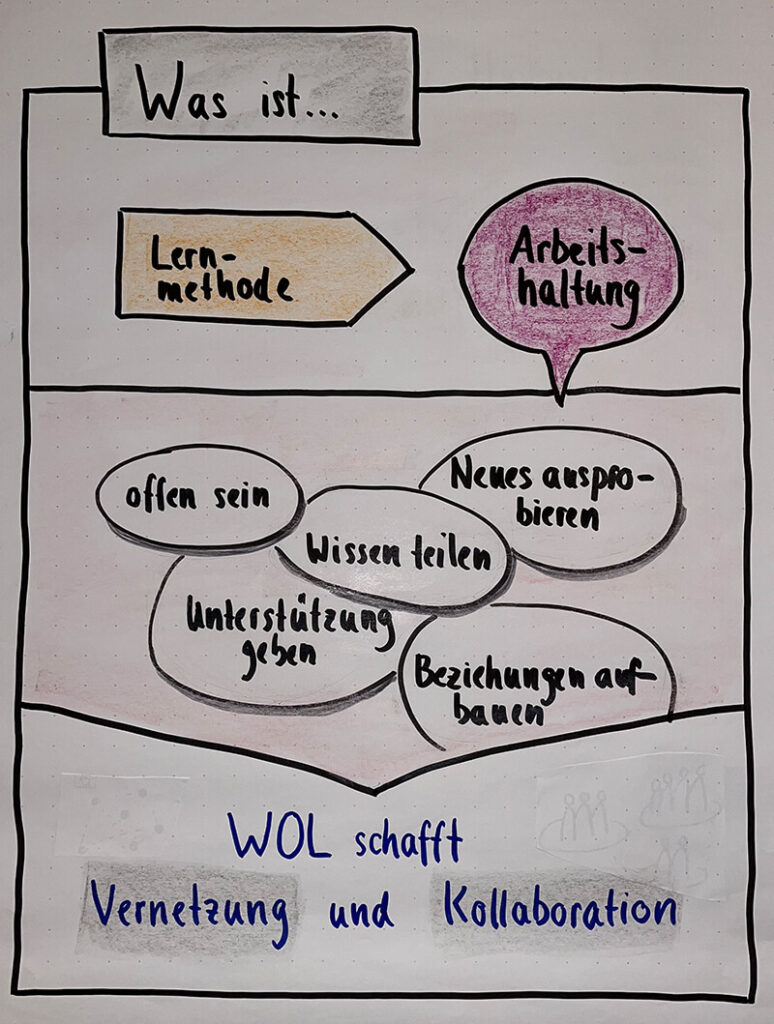 Was ist...
Lern-
methode
Arbeits-
haltung
offen sein
Neues auspro-
bieren
Wissen teilen
Unterstützung
geben
Beziehungen auf-
bauen
WOL schafft
Vernetzung und Kollaboration